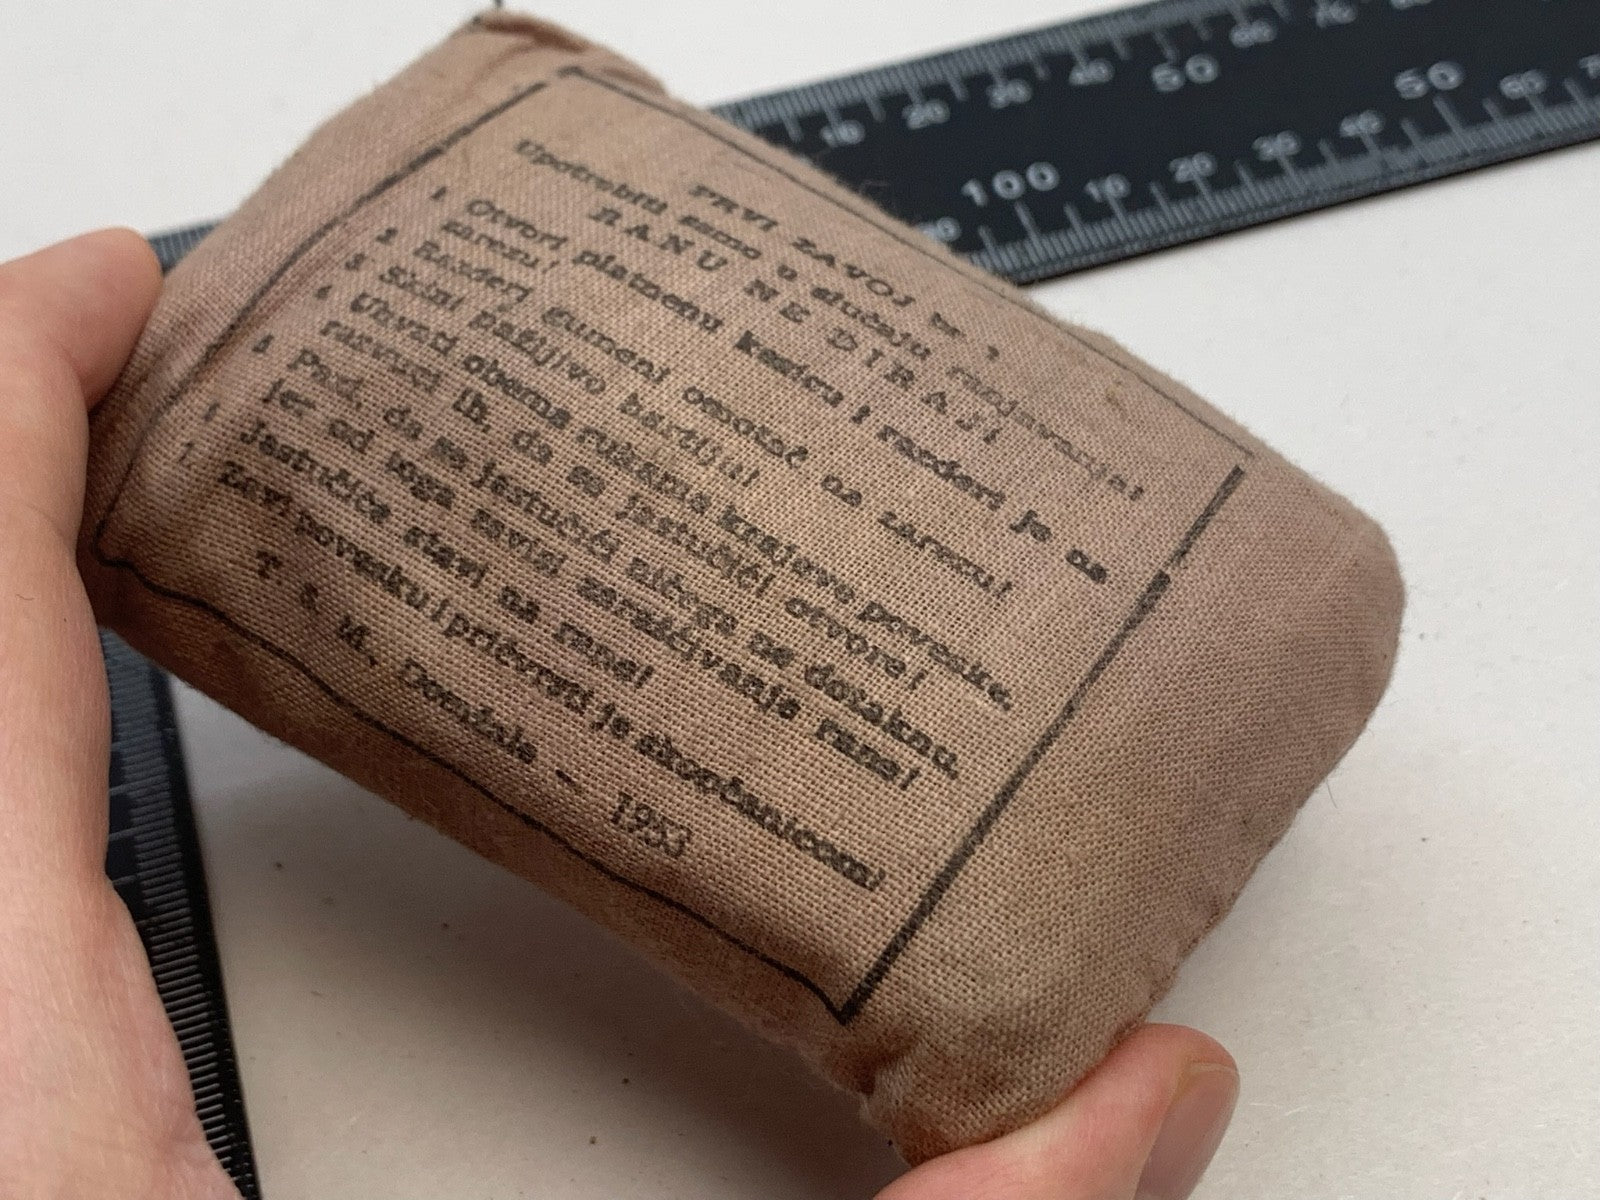 PRVI ZAVOJ br. 1
Upotrebiti samo u slučaju ranjavanja!
RANU NE DIRAJ!
1 Otvori platnenu kesicu i razderi je na
zarezu!
2 Razderi gumeni omotač na zarezu!
3 Skini pažljivo hartiju!
4 Uhvati obema rukama krajeve poveske,
razvuci ih, da se jastučići otvore!
5 Pazi, da se jastučići ničega ne dotaknu,
jer od toga zavisi zaražčivanje rane!
6 Jastučiće stavi na rane!
7. Zavi povesku i pričvrsti je zihotčanicom!
T. S. M. Domžale — 1953
50
100
10 20 30 40 50 60 70
10 20 30 40 50 60